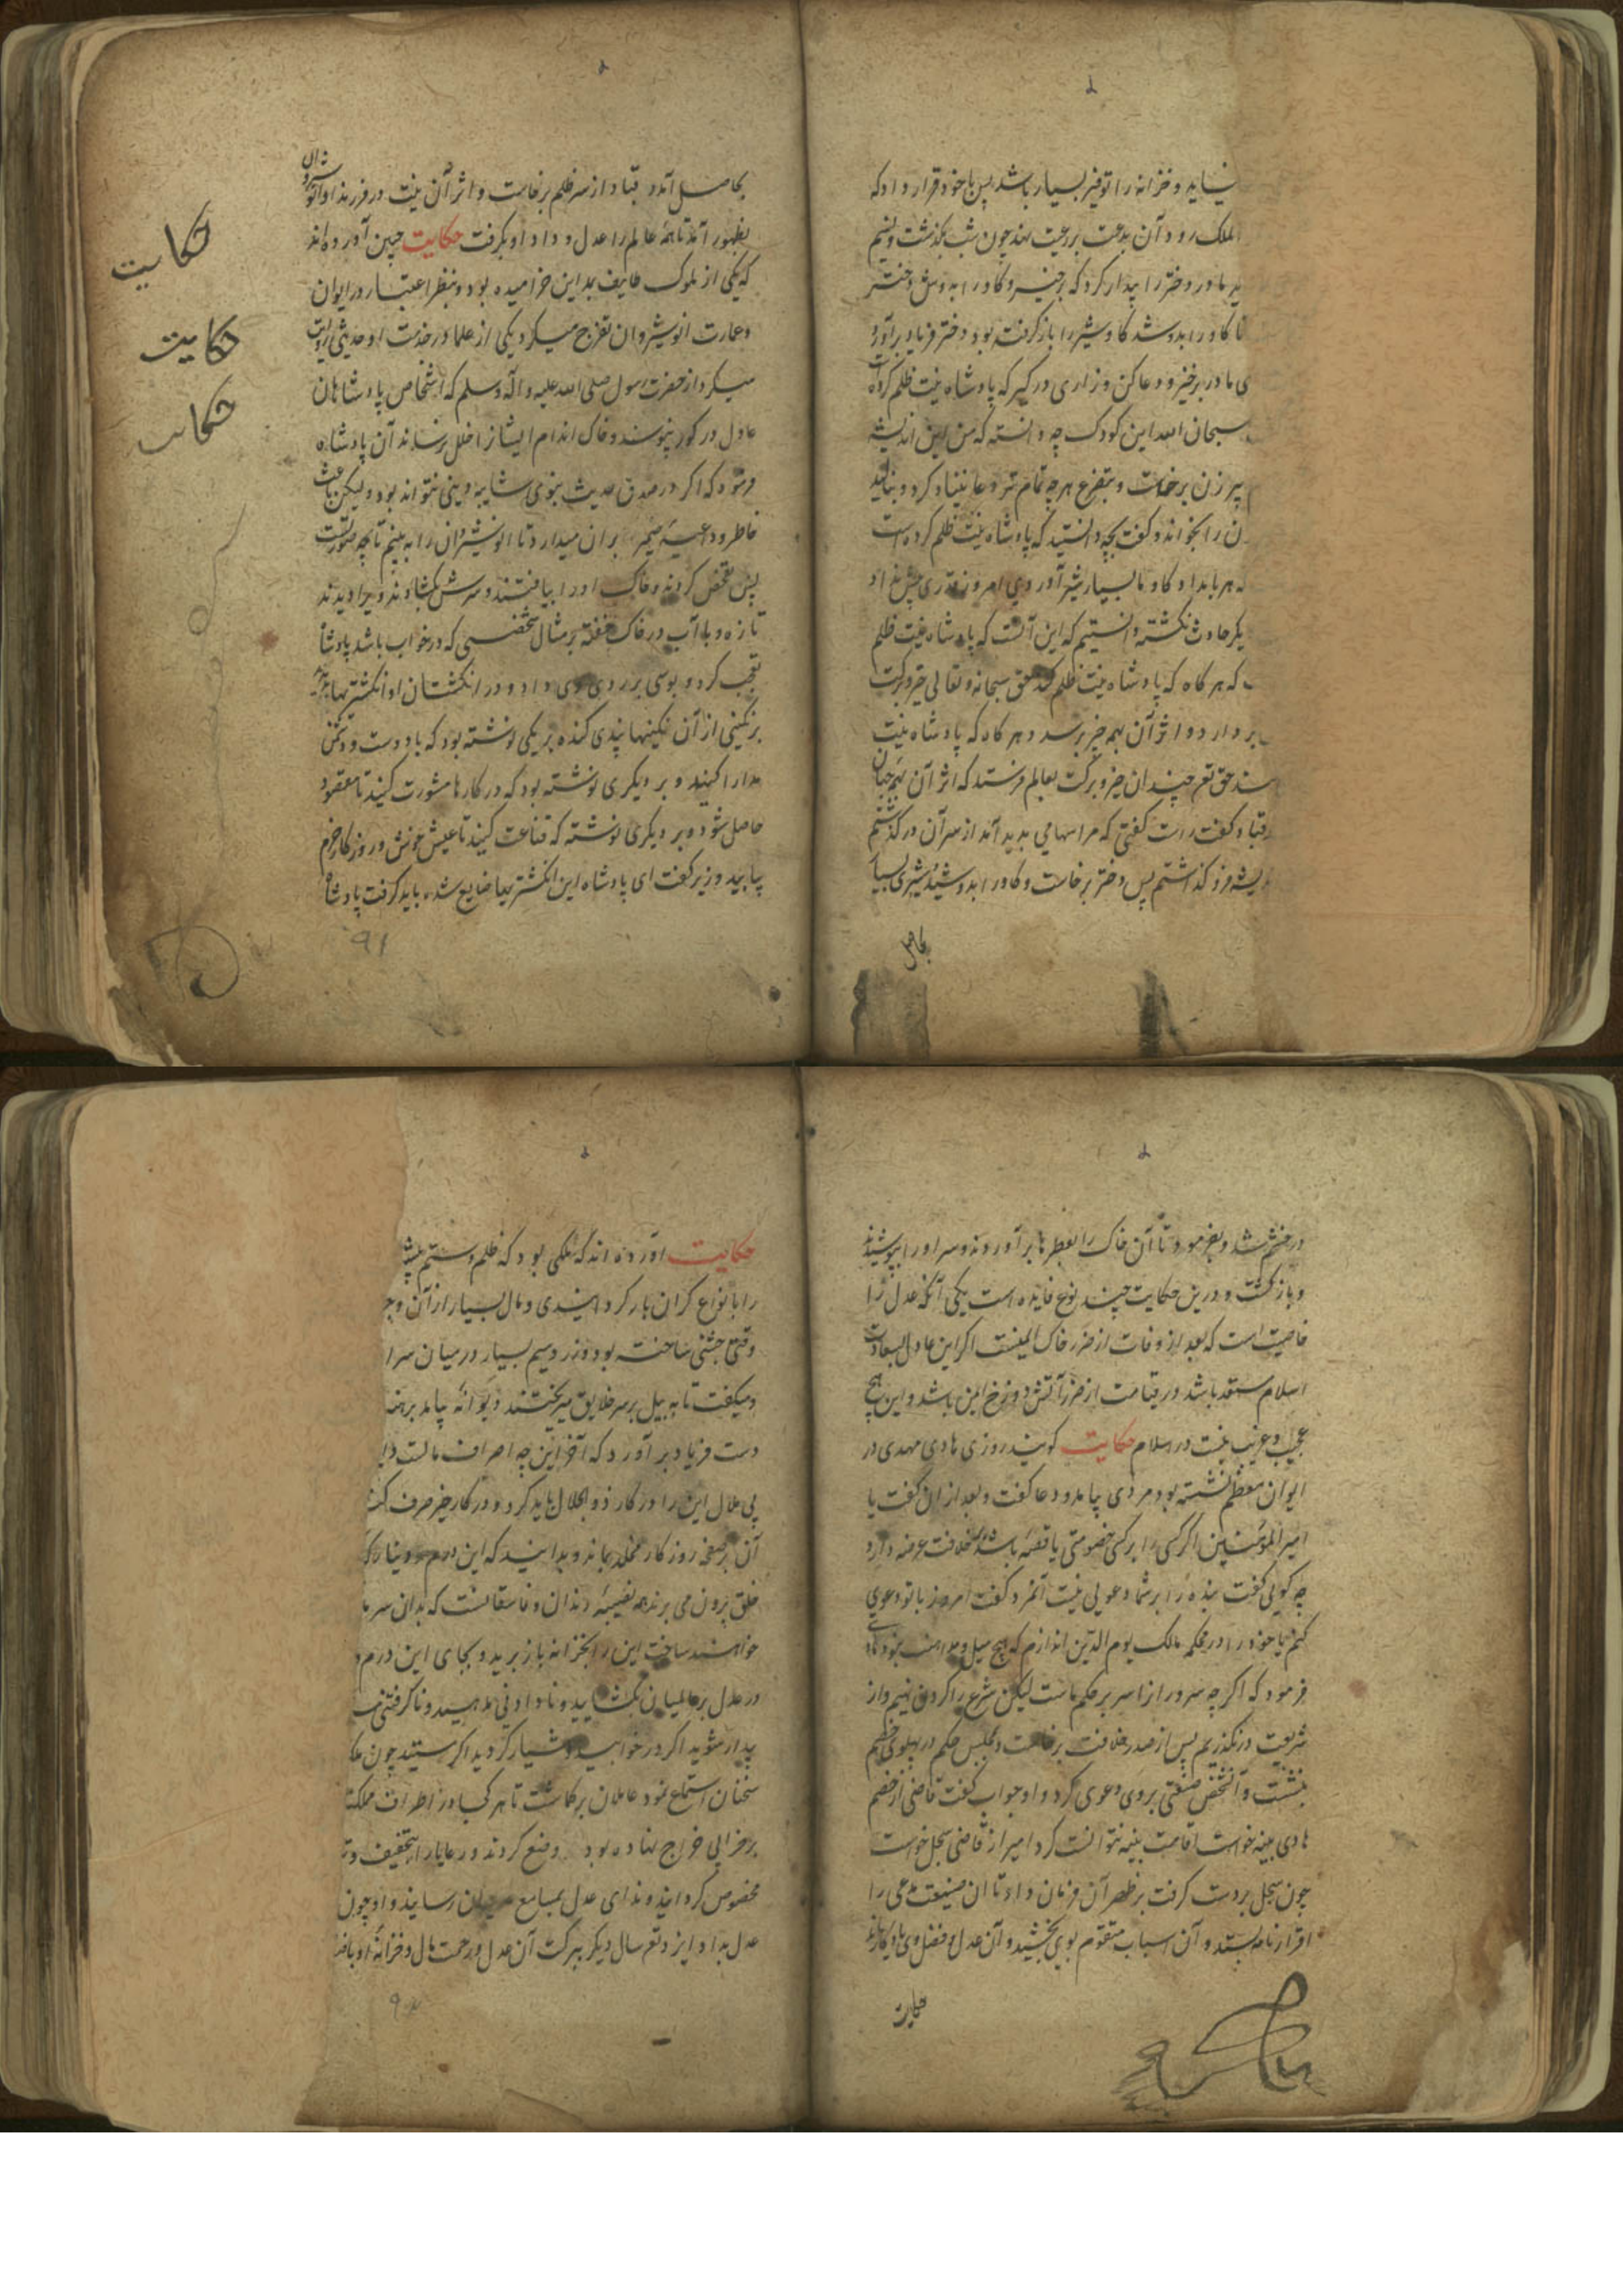 نیاید و خزانه را توفیر بسیار باشد پس با خود قرار داد که
الملک رود آن بدعت بر رعیت نهد چون شب بگذشت و نسیم
مادر دختر را بیدار کرد که برخیز و گاو را بدوش دختر
تا گاو را بدوشد گاو شیر را باز گرفته بود دختر فریاد برآورد
ی مادر برخیز و دعا کن و زاری در گیر که پادشاه نیت ظلم کرده است
سبحان الله این کودک چه دانسته که من این اندیشه
پیر زن برخاست و بتضرع هر چه تمام تر دعا بنیاد کرد و بنالید
ن را بخواند و گفت بچه دانستید که پادشاه نیت ظلم کرده است
که هر بامداد گاو ما بسیار شیر آوردی امروز قدری پیش نداد
دیگر حادث نگشته دانستیم که این آنست که پادشاه نیت ظلم
که هر گاه که پادشاه نیت ظلم کند حق سبحانه و تعالی خیر و برکت
بر دارد و اثر آن بهمه چیز برسد و هر گاه که پادشاه نیت
کند حق تع چندان خیر و برکت بعالم فرستد که اثر آن بهمه جهان
قباد گفت راست گفتی که مرا سهامی بدید آمد از سر آن در گذشتم
دیشه فرو گذاشتم پس دختر برخاست و گاو را بدوشید شیری بسیار
بحاصل
بحاصل آمد و قباد از سر ظلم برخاست و اثر آن نیت در فرزند او انوشروان
بظهور آمد تا همه عالم را عدل و داد او بگرفت حکایت چنین آورده‌اند
که یکی از ملوک طایف بمداین خرامیده بود و بنظر اعتبار در ایوان
و عمارت انوشیروان تفرج میکرد یکی از علما در خدمت او حدیثی روایت
میکرد از حضرت رسول صلی الله علیه و آله و سلم که اشخاص پادشاهان
عادل در گور نپوسند و خاک اندام ایشانرا خلل نرساند آن پادشاه
فرمود که اگر در صدق حدیث نبوی شایبه و ریبی نتواند بود و لیکن باعث
خاطر و داعیه ضمیر بر آن میدارد تا انوشیروان را به بینم تا بچه صورتست
پس تفحص کردند و خاک او را بیافتند و سرش بگشادند و ویرا دیدند
تازه و با آب در خاک خفته بر مثال شخصی که در خواب باشد پادشاه
تعجب کرد و بوسی بر روی وی داد و در انگشتان او انگشتریها بود
بر نگینی از آن نگینها پندی کنده بر یکی نوشته بود که با دوست و دشمن
مدارا کنید و بر دیگری نوشته بود که در کارها مشورت کنید تا مقصود
حاصل شود و بر دیگری نوشته که قناعت کنید تا عیش خوش و روزگار خرم
بیابید وزیر گفت ای پادشاه این انگشتریها ضایع شد بباید گرفت پادشاه
۹۱
حکایت
حکایت
حکایت
در خشم شد و بفرمود تا آن خاک را بعطرها بر آوردند و سر او را بپوشیدند
و باز گشت و درین حکایت چند نوع فایده است یکی آنکه عدل را
خاصیت است که بعد از وفات از ضرر خاک ایمنست اگر این عادل بسعادت
اسلام مستعد باشد در قیامت از ضرر آتش دوزخ ایمن باشد و این هیچ
عجیب و غریب نیست در اسلام حکایت گویند روزی هادی مهدی در
ایوان معظم نشسته بود مردی بیامد و دعا گفت و بعد از آن گفت یا
امیر المؤمنین اگر کسی را بر کسی خصومتی یا قصه باشد بخلافت عرضه دارد
چه گویی گفت بنده را بر شما دعویی نیست آنمرد گفت امروز با تو دعوی
کنم یا خود را در محکمه مالک یوم الدین اندازم که هیچ میل و مداهنت نبود هادی
فرمود که اگر چه سروران را سر بر حکم ماست لیکن شرع را گردن نهیم و از
شریعت در نگذریم پس از صدر خلافت برخاست و بمجلس حکم در پهلوی خصم
بنشست و آنشخص ضیعتی بر وی دعوی کرد و او جواب گفت قاضی از خصم
هادی بینه خواست اقامت بینه نتوانست کرد امیر از قاضی سجل خواست
چون سجل بر دست گرفت بر ظهر آن فرمان داد تا آن ضیعت مدعی را
اقرار نامه بستد و آن اسباب متقوم بوی بخشید و آن عدل و فضل وی یادگار ماند
حکایت
حکایت آورده اند که ملکی بود که ظلم و ستم پیشه
را بانواع گران بار گردانیدی و مال بسیار از آن وجه
وقتی جشنی ساخته بود و زر و سیم بسیار در میان سرا
و میگفت تا به بیل بر سر خلایق میریختند دیوانه بیامد برهنه
دست فریاد بر آورد که آخر این چه اصراف مالست
بی ملال این را در کار ذو الجلال باید کرد و در کار خیر صرف کنید
آن بر صفحه روزگار مخلد بماند و بدانید که این درم و دینار که
خلق برون می برند همه نصیبه رندان و فاسقانست که بدان سرما
خواهند ساخت این را بخزانه باز برید و بجای این درم و
در عدل بر عالمیان بگشایید و نا دادنی مدهید و نا گرفتنی
بیدار شوید اگر در خوابید و هشیار گردید اگر مستید چون ملک
سخنان استماع نمود عاملان بر گماشت تا هر کجا در اطراف مملکت
بر خرابی خراج نهاده بود وضع کردند و رعایا را بتخفیف و
مخصوص گردانیدند و ندای عدل بمسامع جهان رسانید و او چون
عدل بداد ایزد تع سال دیگر ببرکت آن عدل و رحمت مال و خزانه او باضعاف